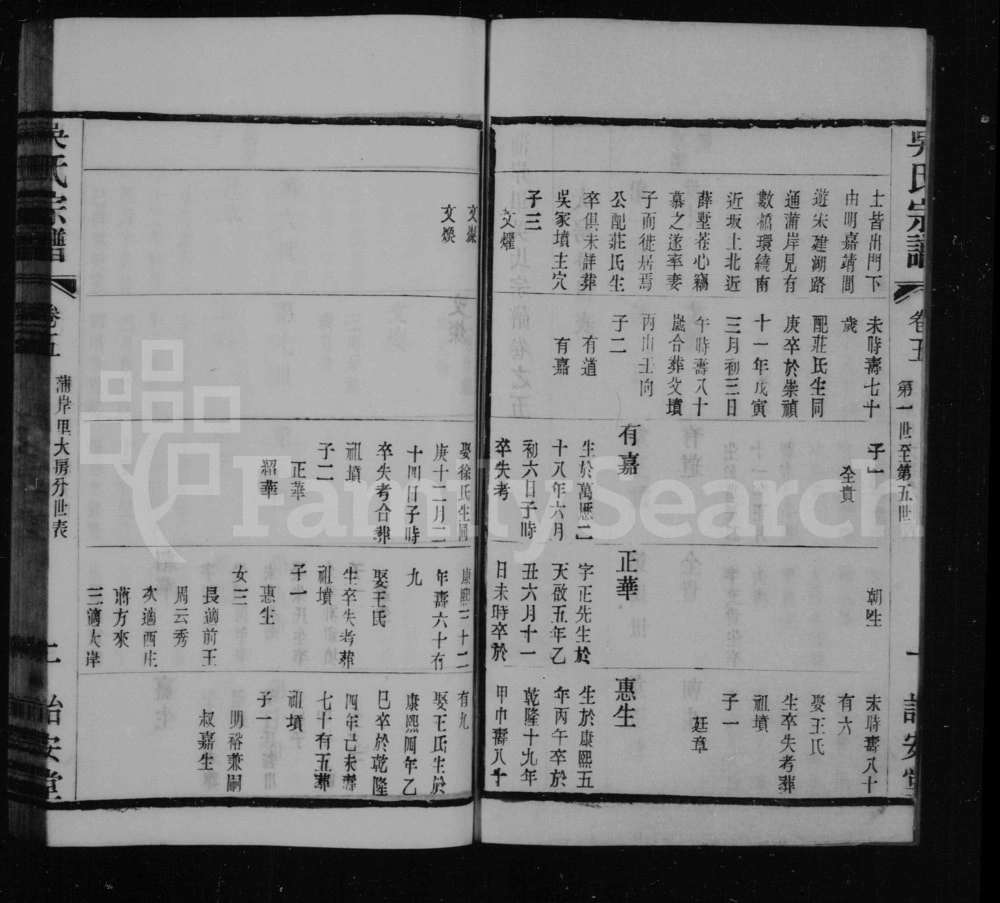 吳氏宗譜
卷五
第一世至第五世
一
詒安堂
士皆出門下
由明嘉靖間
遊宋建湖路
通蒲岸見有
數橋環繞南
近坂上北近
薛墅巷心竊
慕之遂率妻
子而徙居焉
公配莊氏生
卒俱未詳葬
吳家墳主穴
子三
文燿
文燉
文煥
未時壽七十
歲
配莊氏生同
庚卒於崇禎
十一年戊寅
三月初三日
午時壽八十
歲合葬父墳
丙山壬向
子二
有道
有嘉
子一
全貴
有嘉
生於萬曆二
十八年六月
初六日子時
卒失考
娶徐氏生同
庚十二月二
十四日子時
卒失考合葬
祖墳
子二
正華
紹華
朝生
正華
字正先生於
天啟五年乙
丑六月十一
日未時卒於
康熙三十二
年壽六十有
九
娶王氏
生卒失考葬
祖墳
子一
惠生
女三
長適前王
周云秀
次適西庄
蔣方來
三適大岸
未時壽八十
有六
娶王氏
生卒失考葬
祖墳
子一
廷章
惠生
生於康熙五
年丙午卒於
乾隆十九年
甲戌壽八十
有九
娶王氏生於
康熙四年乙
巳卒於乾隆
四年己未壽
七十有五葬
祖墳
子一
明裕兼嗣
叔嘉生
吳氏宗譜
卷五
蒲岸里大房分世表
二
詒安堂
FamilySearch